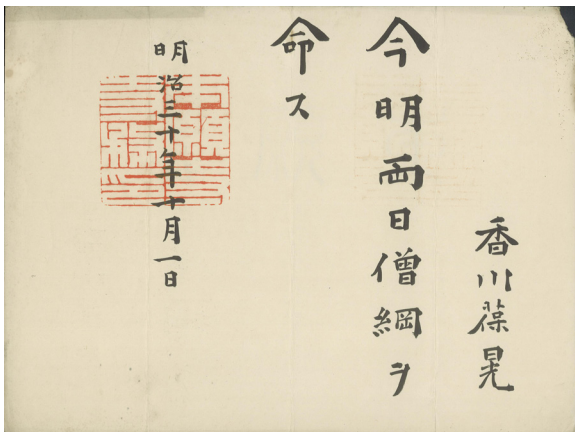 香川葆晃
今明両日僧綱ヲ
命ス
明治三十年十月一日